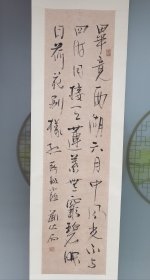 畢竟西湖六月中風光不与
四時同接天蓮葉無窮碧映
日荷花別樣紅